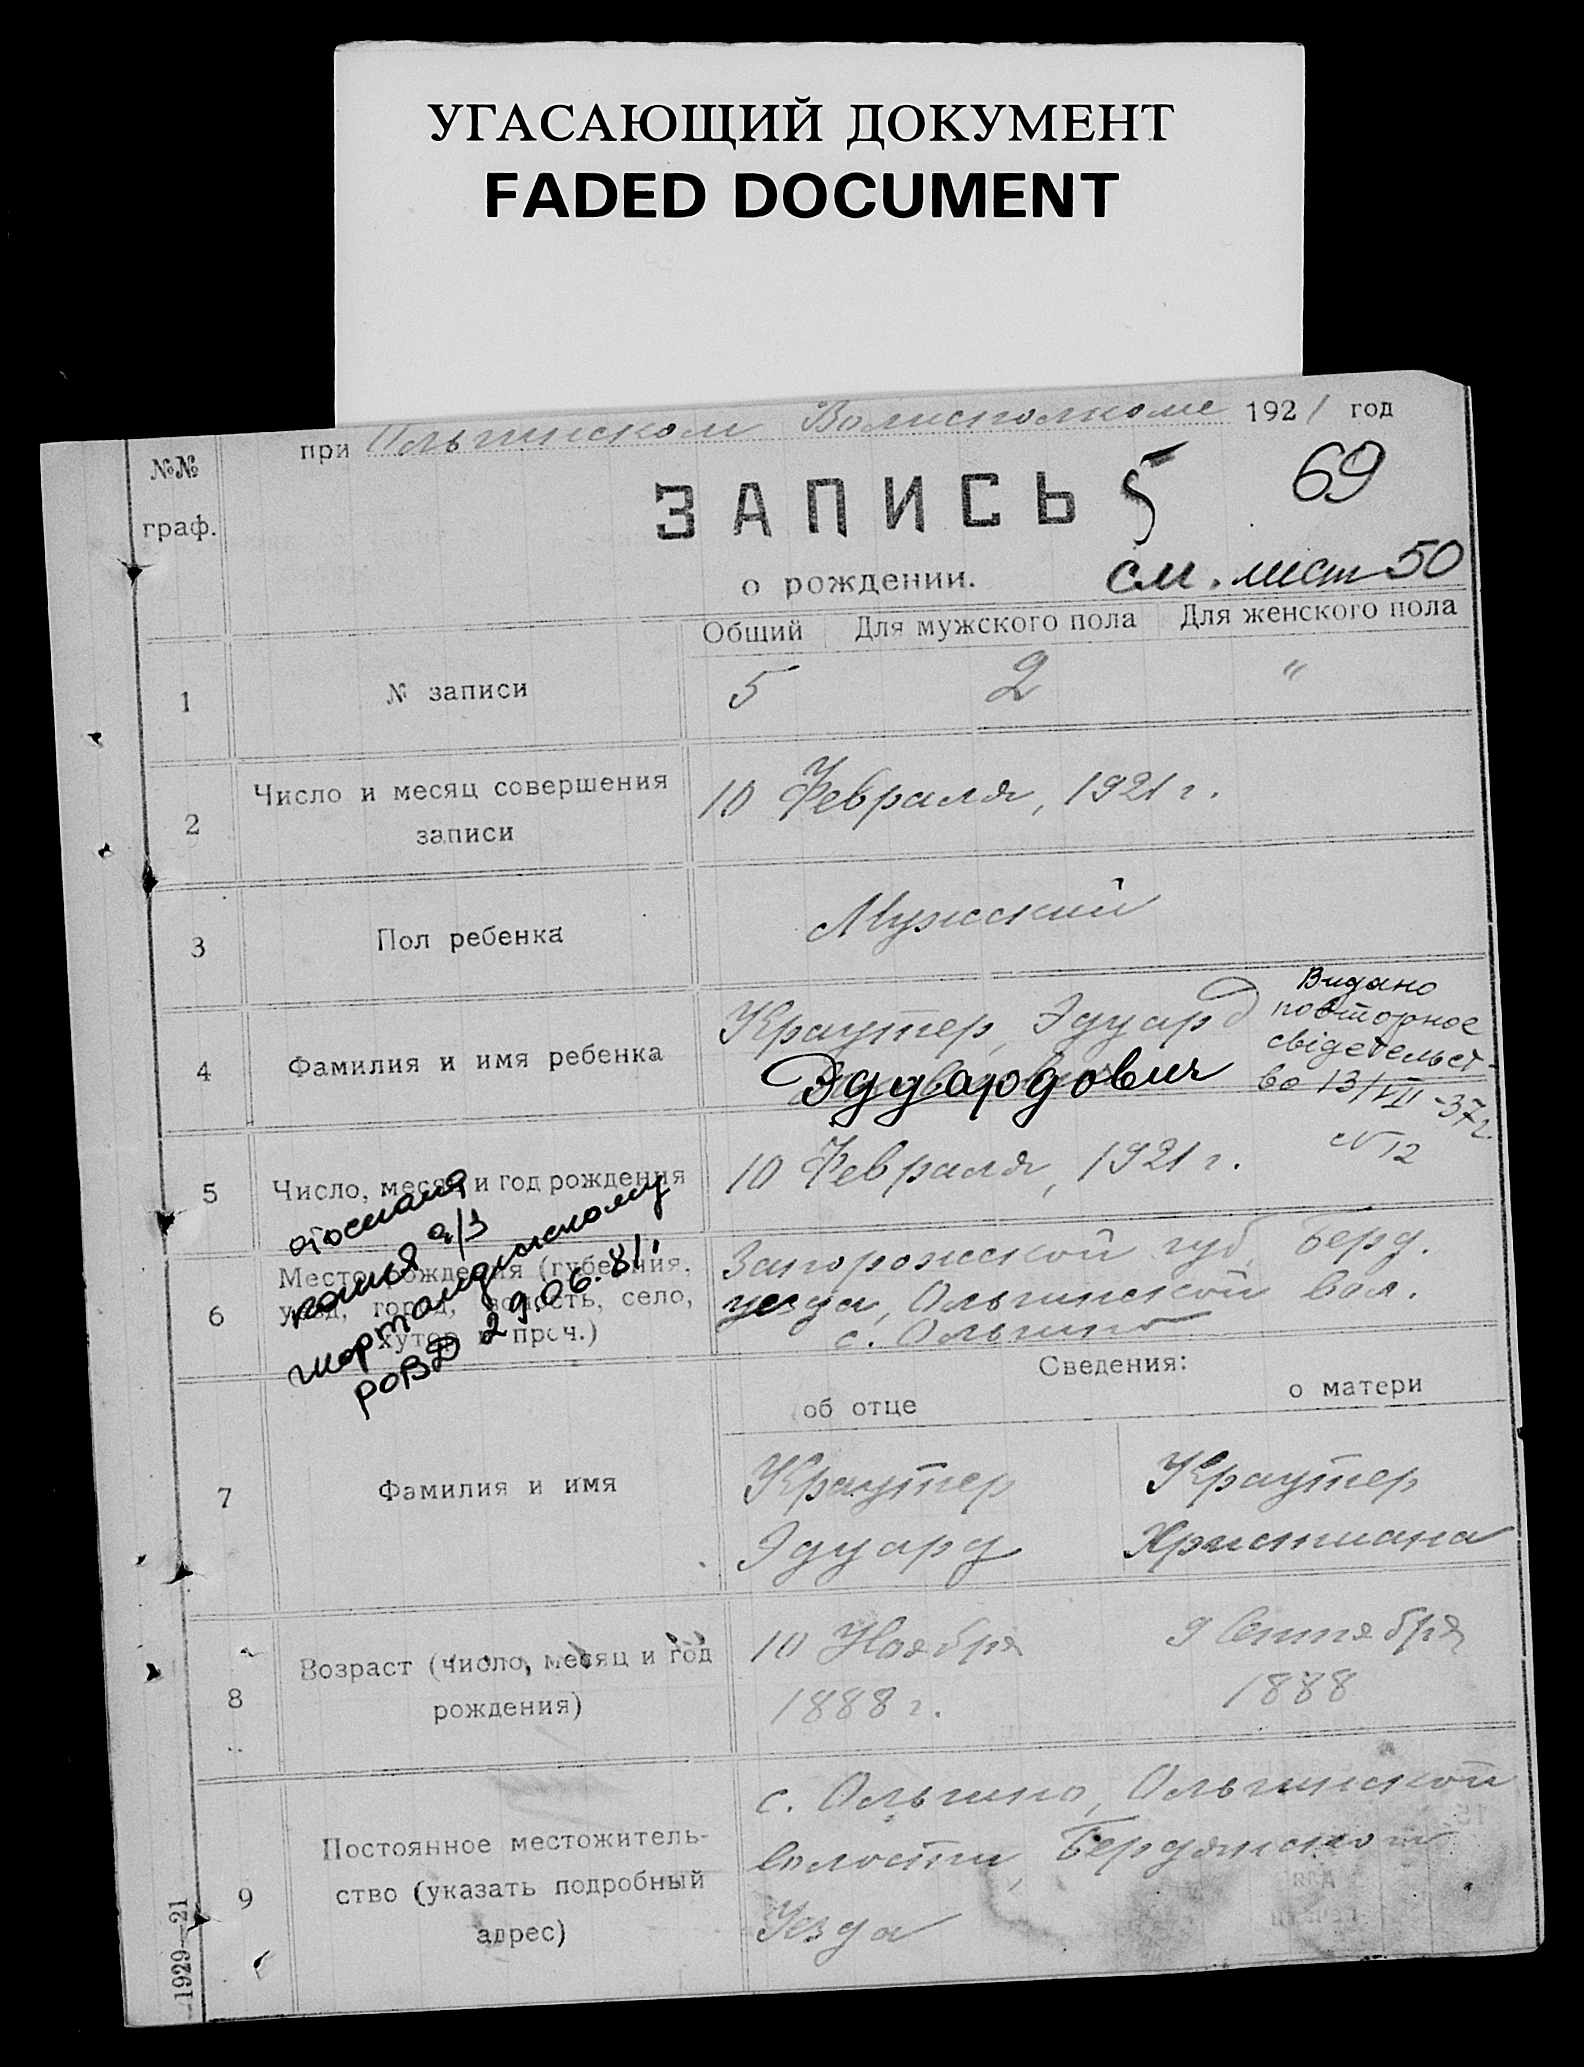 УГАСАЮЩИЙ ДОКУМЕНТ
FADED DOCUMENT
при Ольгинском Волисполкоме 1921 год
№№
граф.
ЗАПИСЬ 5
69
о рождении.
см. лист 50
Общий Для мужского пола Для женского пола
1 № записи 5 2 "
2 Число и месяц совершения
записи
10 Февраля, 1921 г.
3 Пол ребенка Мужский
4 Фамилия и имя ребенка
Краутер, Эдуард
Эдуардович
Видано
повторное
свідетельст-
во 13/VII-37г.
N 12
5 Число, месяц и год рождения 10 Февраля, 1921 г.
6 Место рождения (губерния,
уезд, город, волость, село,
хутор и проч.)
Запорожской губ, Берд.
уезда, Ольгинской вол.
с. Ольгино
копия а/з
РОВД 29.06.81.
Сведения:
об отце о матери
7 Фамилия и имя
Краутер Краутер
Эдуард Христиана
8 Возраст (число, месяц и год
рождения)
10 Ноября 9 Сентября
1888 г. 1888
9 Постоянное местожитель-
ство (указать подробный
адрес)
с. Ольгино, Ольгинской
волости, Бердянского
Уезда
1929—21